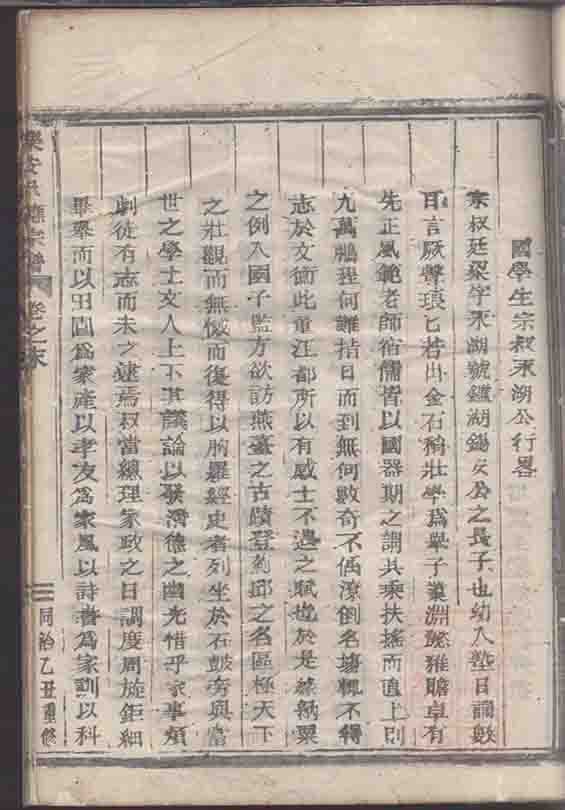 國學生宗叔永湖公行畧
宗叔廷梁字永湖號鑑湖錫安公之長子也幼入塾日誦數
百言厥聲琅匕若出金石稍壯學爲舉子業淵懿雅贍卓有
先正風範老師宿儒皆以國器期之謂其乘扶搖而直上則
九萬鵬程何難指日而到無何數奇不偶潦倒名塲輒不得
志於文衡此董江都所以有感士不遇之賦也於是援納粟
之例入國子監方欲訪燕臺之古蹟登豹邱之名區極天下
之壯觀而無憾而復得以胸羅經史者列坐於石鼓旁與當
世之學士文人上下其議論以發潛德之幽光惜乎家事煩
劇徒有志而未之逮焉叔當總理家政之日調度周旋鉅細
畢舉而以田園爲家產以孝友爲家風以詩書爲家訓以科
樂安 宗譜
卷之末
三
同治乙丑重修